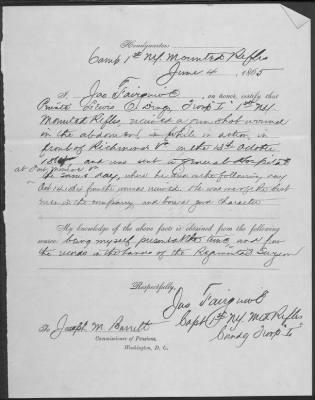 Headquarters
Camp 1st NY Mounted Rifles
June 4, 1865
I, Jas Fairgrieve, on honor, certify that
Private Lewis O. Troop "I" 1st NY
Mounted Rifles, received a gun shot wound
in the abdomen, while in action, in
front of Richmond Va on the 13th October
1864, and was sent to general Hospital
at Fort Monroe Va
the same day, where he died on the following day
Oct 14, of said wound received. He was one of the best
men in the company, and bore a good character
My knowledge of the above facts is obtained from the following
source: being myself present at the time, and from
the records in the hands of the Regimental Surgeon
Respectfully,
Jas Fairgrieve
Capt 1st NY Mtd Rifles
Comdg Troop "I"
To Joseph M. Barrett
Commissioner of Pensions,
Washington, D. C.